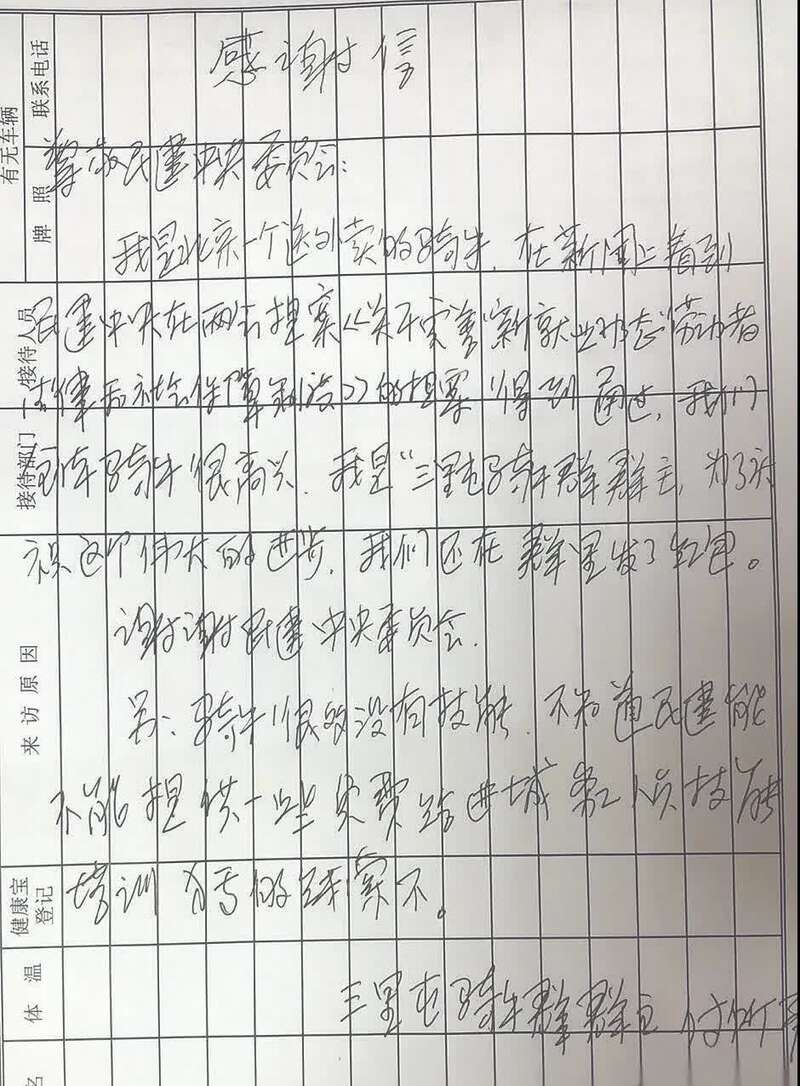 感谢信
尊敬民建中央委员会:
我是北京一个送外卖的骑手,在新闻上看到
民建中央在两会提案《关于完善"新就业形态"劳动者
法律和社会保障制度》的提案得到通过,我们
骑手很高兴.我是"三里屯骑手群群主,为了
这个伟大的进步,我们还在群里发了红包。
谢谢民建中央委员会.
另:骑手很多没有技能.不知道民建能
不能提供一些免费给进城务工人员技能
培训 的 案不。
三里屯骑手群群主
有无车辆
联系电话
牌照
接待人员
接待部门
来访原因
健康宝
登记
体温
名